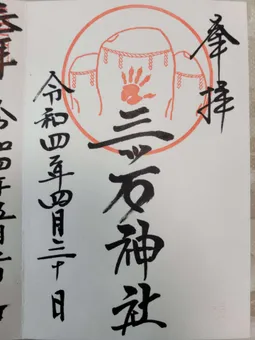 奉拝
三ッ石神社
令和四年四月二十日
奉拝
令和四年五月二日